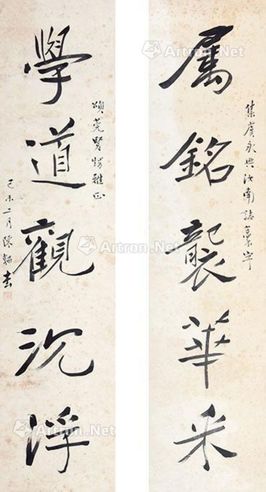 属銘華采
集虞永興汝南誌稾字
學道觀沉浮
頌堯賢雅正
己未二月陳書
Artron.Net
Artron.Net
Artron.Net
Artron.Net